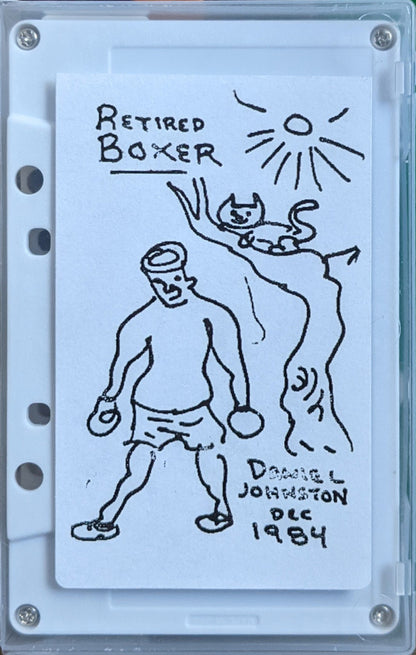 RETIRED
BOXER
DANIEL
JOHNSTON
DEC
1984